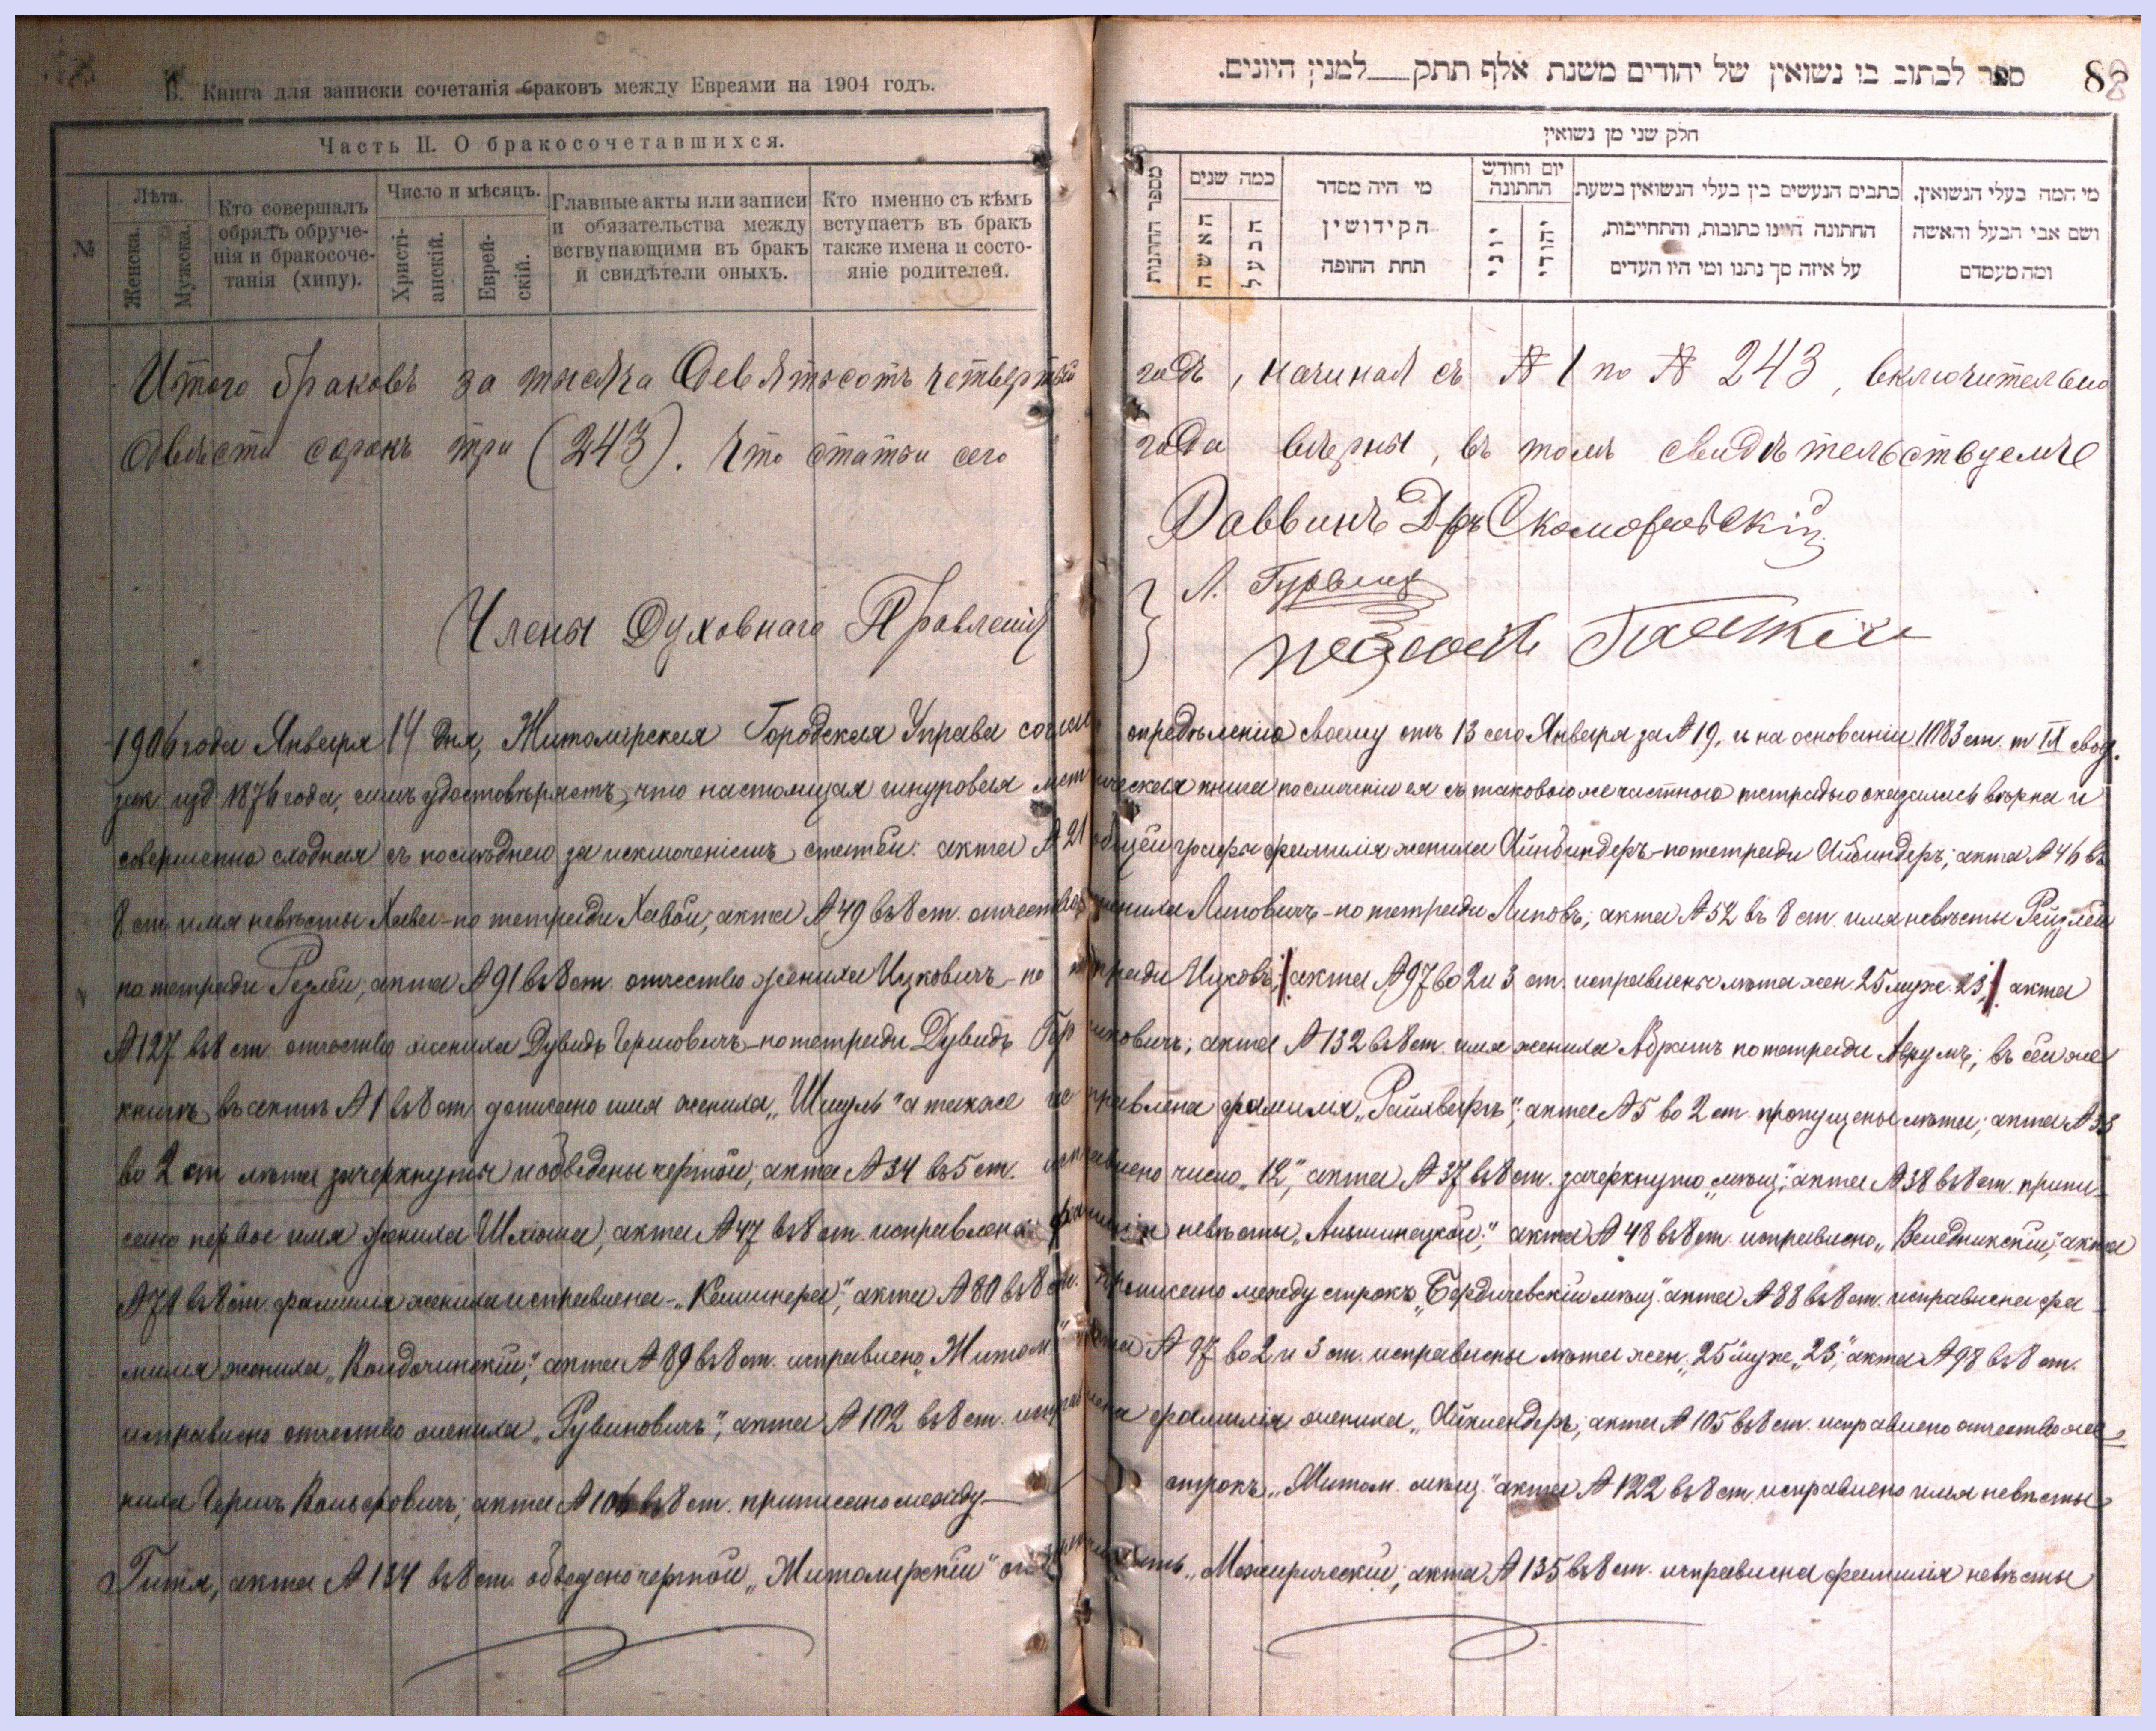 Б. Книга для записки сочетанія браковъ между Евреями на 1904 годъ.
Часть II. О бракосочетавшихся.
№
Лѣта.
Женска.
Мужска.
Кто совершалъ
обрядъ обруче-
нія и бракосоче-
танія (хипу).
Число и мѣсяцъ.
Христі-
анскій.
Еврей-
скій.
Главные акты или записи
и обязательства между
вступающими въ бракъ
и свидѣтели оныхъ.
Кто именно съ кѣмъ
вступаетъ въ бракъ
также имена и состо-
яніе родителей.
ספר לכתוב בו נשואין של יהודים משנת אלף תתק למנין היונים.
88
חלק שני מן נשואין
מספר החתונות
כמה שנים
האשה
הבעל
מי היה מסדר
הקידושין
תחת החופה
יום וחודש
החתונה
יוני
יהודי
כתבים הנעשים בין בעלי הנשואין בשעת
החתונה היינו כתובות, והתחייבות,
על איזה סך נתנו ומי היו העדים
מי המה בעלי הנשואין.
ושם אבי הבעל והאשה
ומה מעמדם
Итого браковъ за тысяча девятьсотъ четвертый годъ, начиная съ № 1 по № 243, включительно
двѣсти сорокъ три (243). Что статьи сего года вѣрны, въ томъ свидѣтельствуемъ
Раввинъ Д-ръ Скоморовскій
Члены Духовнаго Правленія
Л. Гурвицъ
1906 года Января 14 дня, Житомірская Городская Управа согласно опредѣленію своему отъ 13 сего Января за № 19, и на основаніи 1083 ст. т IX свод.
зак. изд. 1876 года, симъ удостовѣряетъ, что настоящая шнуровая метрическая книга по сличеніи ея съ таковою же частною тетрадью оказалась вѣрна и
совершенно сходная съ послѣднею за исключеніемъ статей: акта № 21 общей графы фамилія жениха Айнбиндеръ - по тетради Айбиндеръ; акта № 46 въ
8 ст. имя невѣсты Хава - по тетради Хавой; акта № 49 въ 8 ст. отчество жениха Липовичъ - по тетради Липовъ; акта № 52 въ 8 ст. имя невѣсты Рейзлей
по тетради Рузлей; акта № 91 въ 8 ст. отчество жениха Ицковичъ - по тетради Ицковъ; акта № 97 во 2 и 3 ст. исправлены лѣта жен. 25 муж. 23; акта
№ 127 въ 8 ст. отчество жениха Дувидъ Гершовичъ - по тетради Дувидъ; акта № 132 въ 8 ст. имя жениха Абрамъ по тетради Аврумъ; въ сей же
книгѣ въ актѣ № 1 въ 8 ст. дописано имя жениха „Шмуль" а также исправлена фамилія; акта № 5 во 2 ст. пропущены лѣта; акта № 33
во 2 ст. лѣта зачеркнуты и обведены чертой; акта № 34 въ 5 ст. исправлено число „12", акта № 37 въ 8 ст. зачеркнуто „мѣщ", акта № 38 въ 8 ст. припи-
сано первое имя жениха Шлюма, акта № 47 въ 8 ст. исправлена фамилія невѣсты; акта № 48 въ 8 ст. исправлено; акта
№ 78 въ 8 ст. фамилія жениха исправлена - „Кельнера"; акта № 80 въ 8 ст. приписано между строкъ „Бердичевскій мѣщ". акта № 88 въ 8 ст. исправлена фа-
милія жениха; акта № 89 въ 8 ст. исправлено „Житом." акта № 97 во 2 и 3 ст. исправлены лѣта жен. „25" муж. „23", акта № 98 въ 8 ст.
исправлено отчество жениха „Рувиновичъ"; акта № 102 въ 8 ст. исправлена фамилія жениха; акта № 105 въ 8 ст. исправлено отчество же-
ниха Гершъ Вольфовичъ; акта № 106 въ 8 ст. приписано между строкъ „Житом. мѣщ." акта № 122 въ 8 ст. исправлено имя невѣсты
Гитл, акта № 134 въ 8 ст. обведено чертой „Житомірскій" „Межирическій", акта № 135 въ 8 ст. исправлена фамилія невѣсты